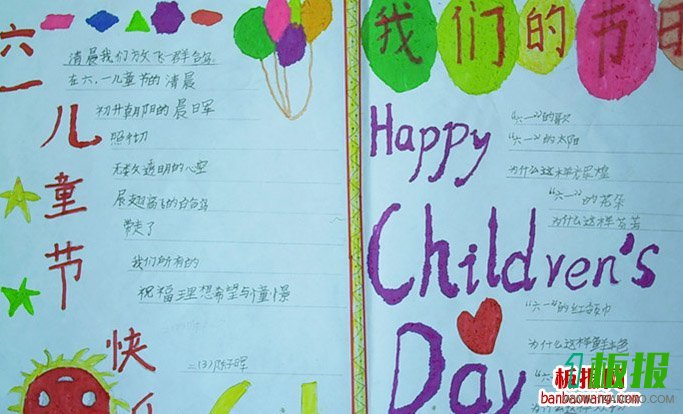 六一儿童节快乐
清晨我们放飞一群白鸽
在六.一儿童节的清晨
初升朝阳的晨晖
照切
无数透明的心空
展翅高飞的白鸽
带走了
我们所有的
祝福理想希望与憧憬
二(3)
我们的节日
Happy
Children's
Day
"六一"的歌
"六一"的太阳
为什么这样辉煌
"六一"的花朵
为什么这样芬芳
"六一"的红领巾
为什么这样鲜本色
板报网
banbaowang.com
板报